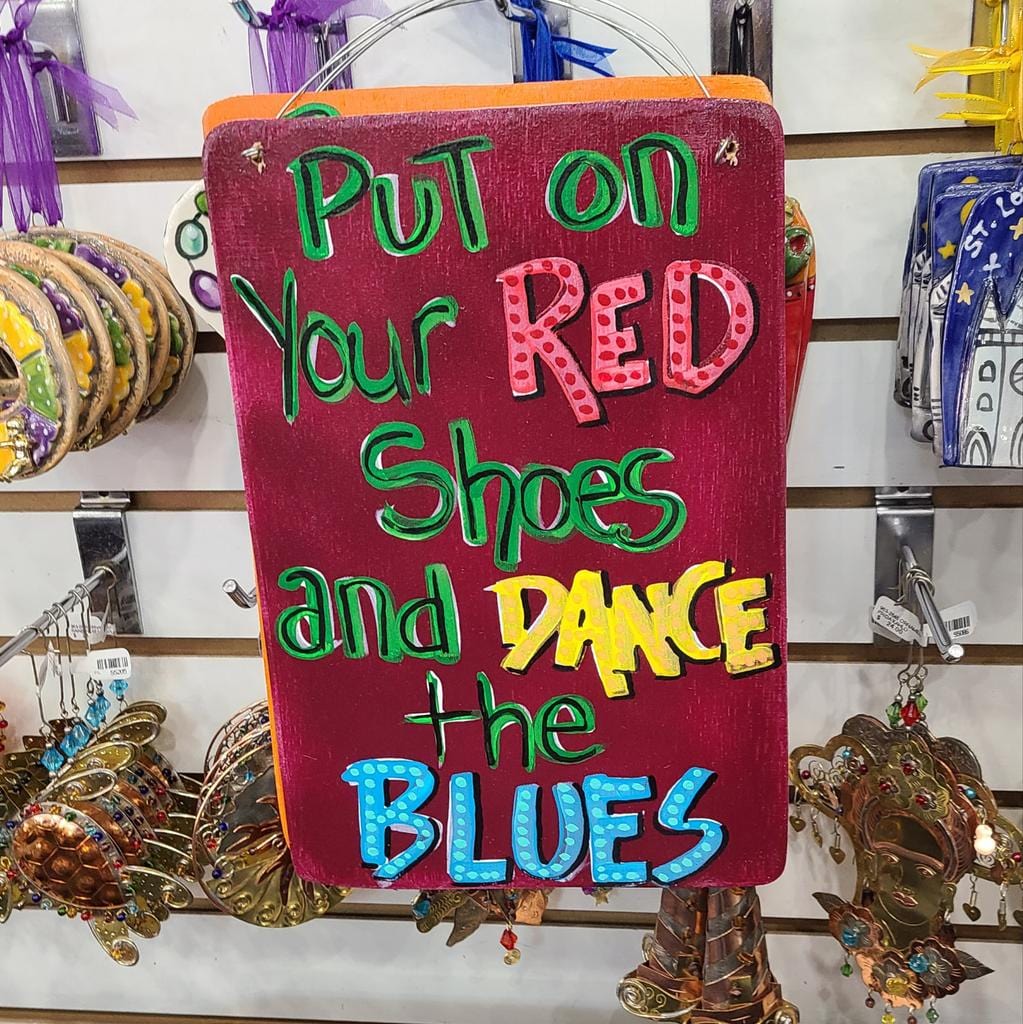 PUT on
Your RED
Shoes
and DANCE
the
BLUES
ST. LO